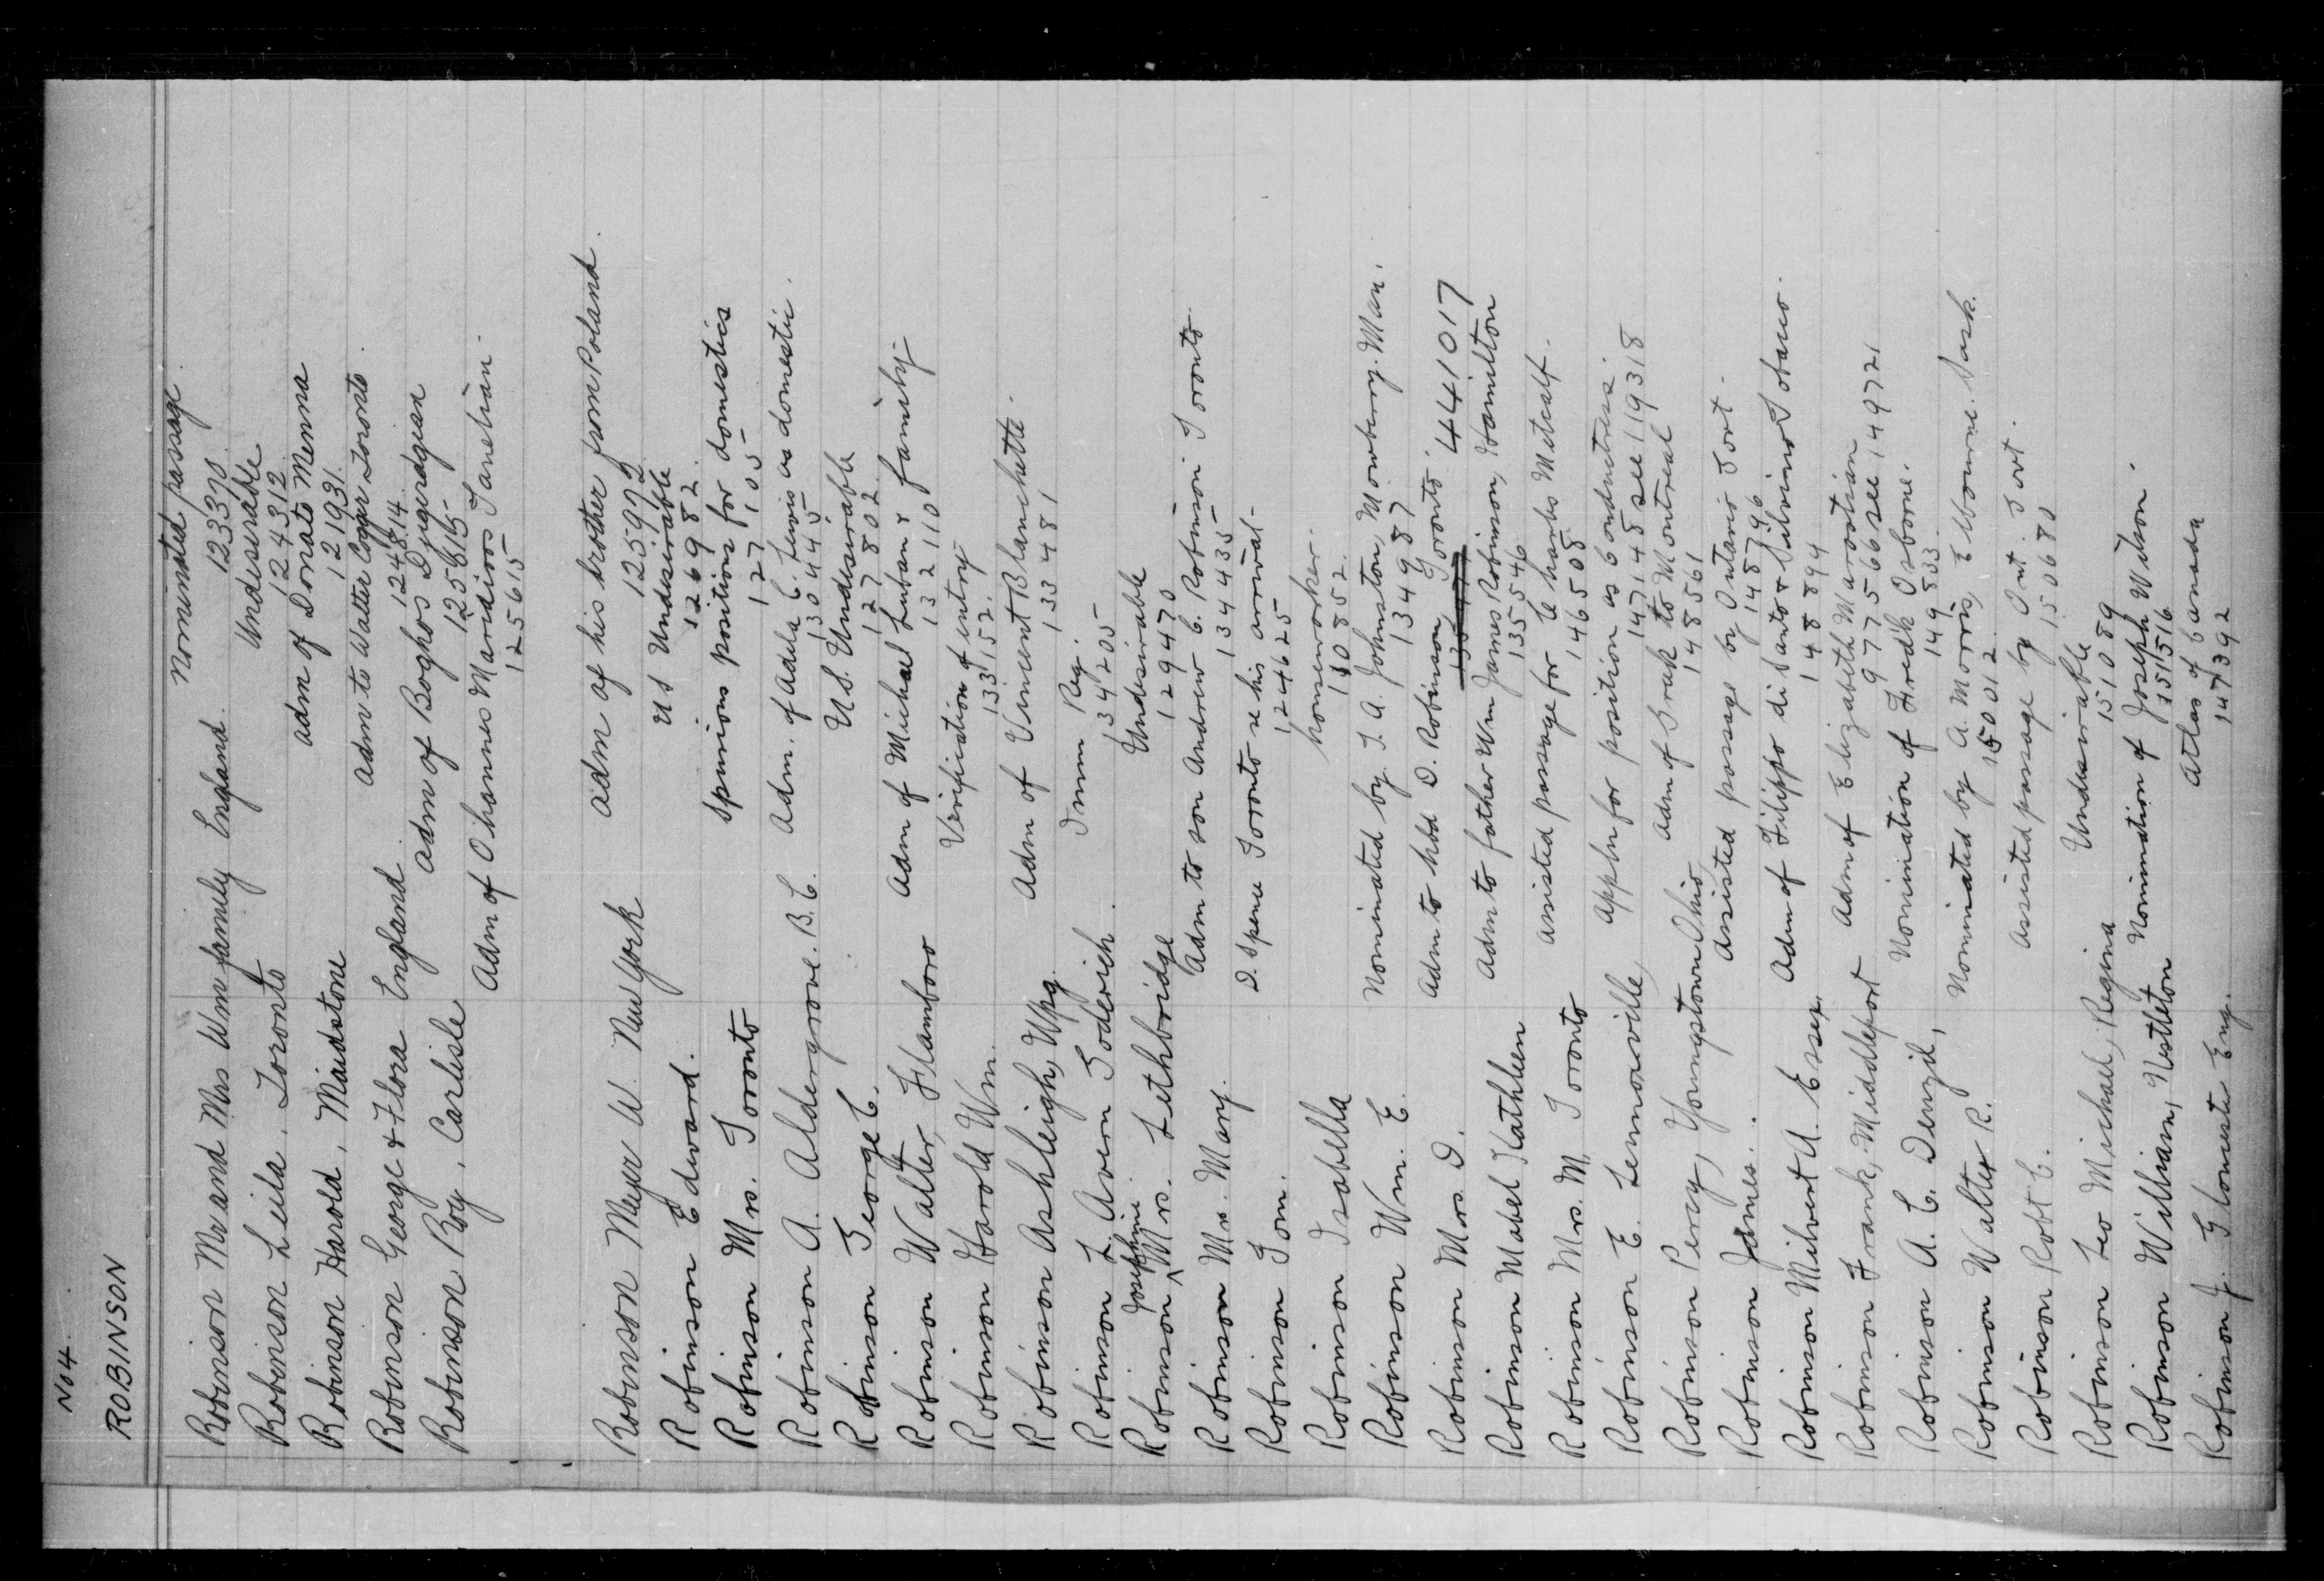 No 4.
ROBINSON
Robinson Mr and Mrs Wm family England. Nominated passage.
123370
Robinson Leila, Toronto Undesirable
124312
Robinson Harold, Maidstone adm of Donato Menna
121931
Robinson George & Flora England adm to Walter Coger Toronto.
124814
Robinson Roy, Carlisle adm of Boghos Djigerdjian
125615
Adm of Ohannes Maridioos Tanelian.
125615
Robinson Meyer W. New York adm of his brother from Poland.
125972
Robinson Edward. U S Undesirable
126982
Robinson Mrs. Toronto Spurious positions for domestics
127105
Robinson A. Aldergrove. B.C. Adm. of Adela C. Lewis as domestic.
130445
Robinson George C. U.S. Undesirable
127802
Robinson Walter, Flamboro Adm of Michael Luban & family
132110
Robinson Harold Wm. Verification of entry
133152.
Robinson Ashleigh, Wpg. Adm of Vincent Blanchette.
133481
Robinson L. Avern Goderich. Imm Reg.
134205
Robinson Josephine Mrs. Lethbridge Undesirable
129470
Robinson Mrs. Mary. Adm to son Andrew C. Robinson Toronto.
134435
Robinson Tom. D. Spence Toronto re his arrival-
124625
Robinson Isabella houseworker.
108852
Robinson Wm. E. Nominated by J. A. Johnston, Mowbery. Man.
134987
Robinson Mrs D. Adm to hbd D. Robinson Toronto. 441017
Robinson Mabel Kathleen Adm to father Wm James Robinson, Hamilton
135546
Robinson Mrs. M. Toronto Assisted passage for Charles Metcalf.
146508
Robinson E. Lemonville, Appln for position as Conductress.
147145 see 119318
Robinson Percy, Youngstown Ohio, Adm of Srak to Montreal
148561
Robinson James. Assisted passage by Ontario Govt.
148796
Robinson Milvert A. Essex Adm of Filippo di Santo & Silvino Tobacco.
148894
Robinson Frank, Middleport Adm of Elizabeth Maroosian
977566 see 149721
Robinson A. C. Denzil, Nomination of Fredk Osborne.
149833
Robinson Walter R. Nominated by A. Morris, Elbourne. Sask.
150012
Robinson Robt C. Assisted passage by Ont. Govt.
150680
Robinson Leo Michael, Regina Undesirable
151089
Robinson William, Nestleton Nomination of Joseph Wilson.
151516
Robinson J. Gloucester Eng. Atlas of Canada
147392